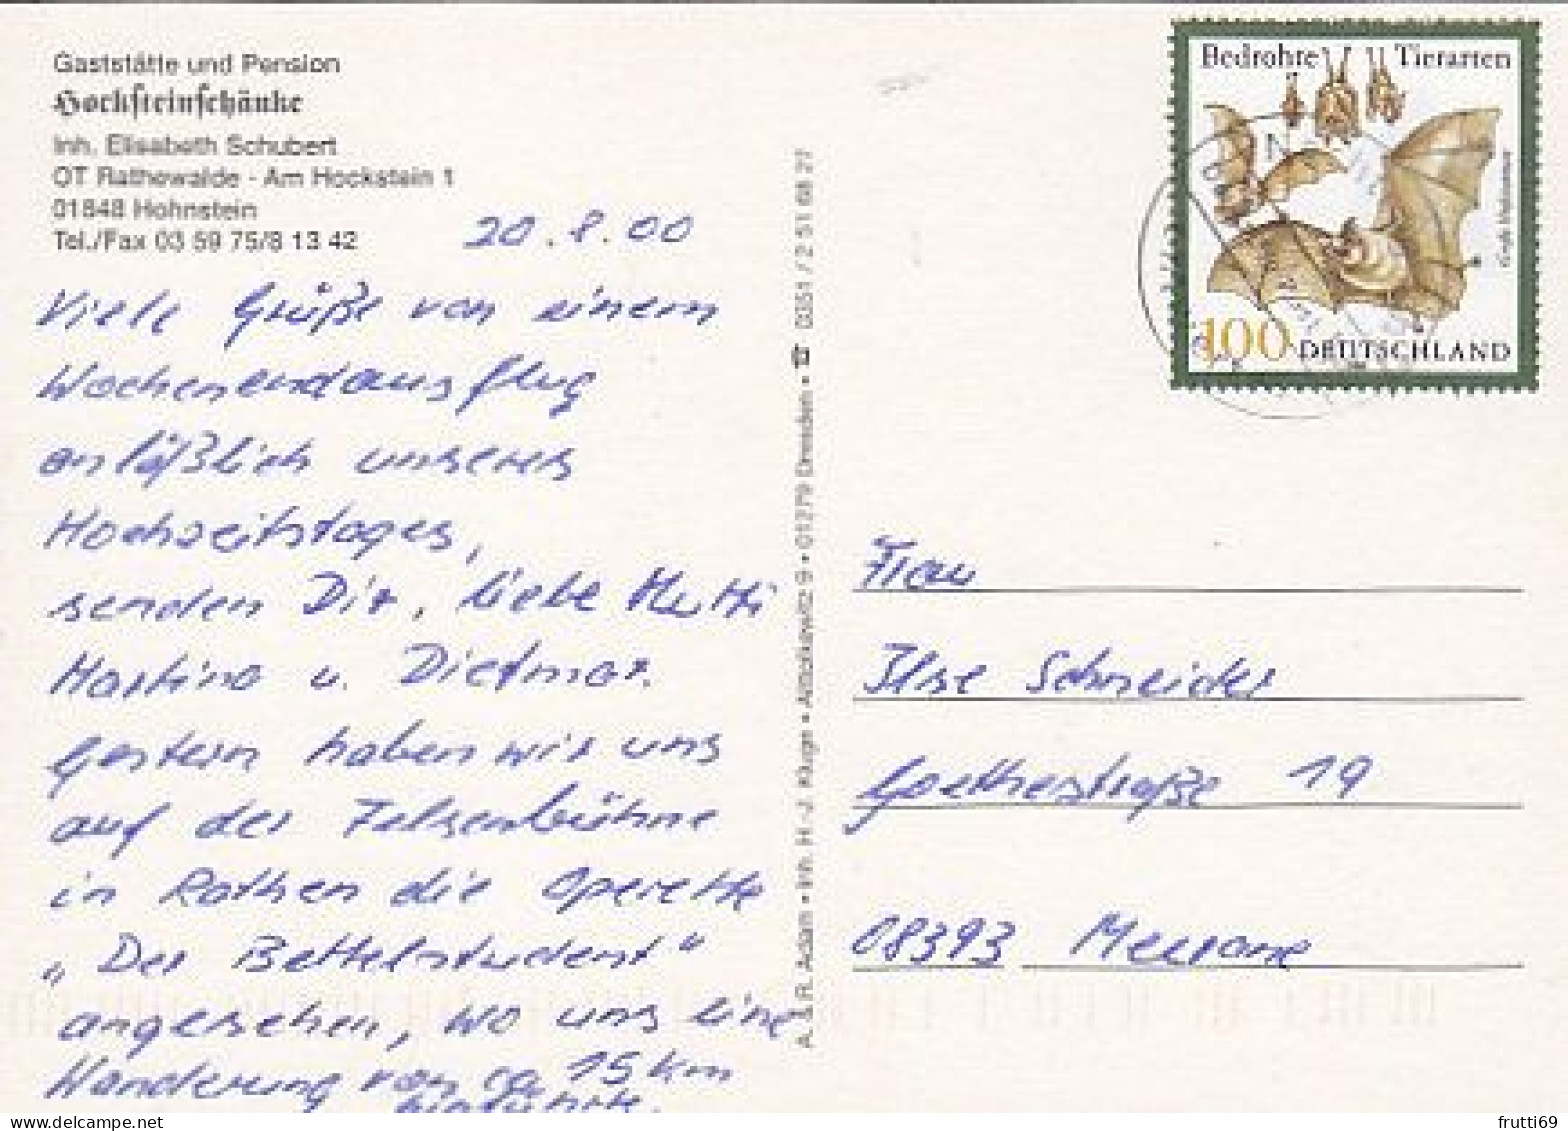 Gaststätte und Pension
Hocksteinschänke
Inh. Elisabeth Schubert
OT Rathewalde - Am Hockstein 1
01848 Hohnstein
Tel./Fax 03 59 75/8 13 42
20.8.00
Viele Grüße von einem
Wochenendausflug
anläßlich unseres
Hochzeitstages,
senden Dir, liebe Mutti
Martina u. Dietmar.
Gestern haben wir uns
auf der Felsenbühne
in Rathen die Operette
„Der Bettelstudent"
angesehen, wo uns eine
Wanderung von ca 15 km
hinführte.
A. & R. Adam • Inh. H.-J. Kluge • Altnickern 9 • 01279 Dresden • ☎ 0351 / 2 51 68 27
Bedrohte Tierarten
100 DEUTSCHLAND
Frau
Ilse Schneider
Goethestraße 19
08393 Meerane
frutti69